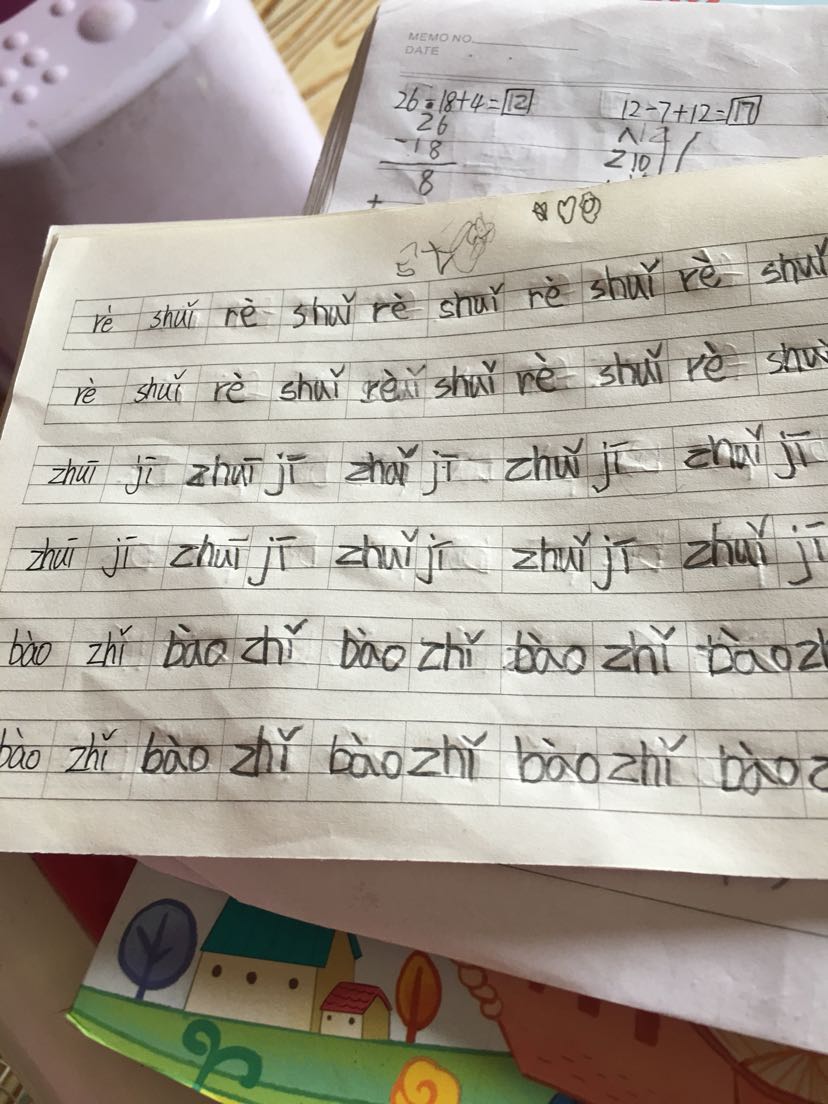 MEMO NO.
DATE
26-18+4=12 12-7+12=17
26
-18
8
+
rè shuǐ rè shuǐ rè shuǐ rè shuǐ rè shuǐ
rè shuǐ rè shuǐ rè shuǐ rè shuǐ rè shuǐ
zhuī jī zhuī jī zhuǐ jī zhuǐ jī zhuǐ jī
zhuī jī zhuī jī zhuǐ jī zhuǐ jī zhuǐ jī
bào zhǐ bào zhǐ bào zhǐ bào zhǐ bào zh
bào zhǐ bào zhǐ bào zhǐ bào zhǐ bào z